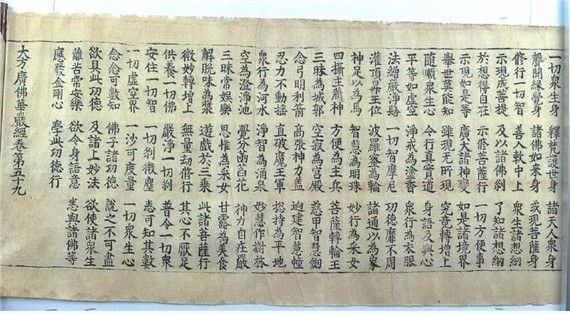 一切衆生身 釋梵護世身 諸天人衆身
聲聞緣覺身 諸佛如來身 或現菩薩身
修行一切智 善入軟中上 衆生諸想網
示現成菩提 及以諸佛刹 了知諸想網
於想得自在 示修菩薩行 一切方便事
示現如是等 廣大諸神變 如是諸境界
舉世莫能知 雖現無所現 究竟轉增上
隨順衆生心 令行真實道 身語及與心
平等如虛空 淨戒為塗香 衆行為衣服
法繒嚴淨髻 一切智摩尼 功德靡不周
灌頂昇王位 波羅蜜為輪 諸通以為象
神足以為馬 智慧為明珠 妙行為采女
四攝主藏神 方便為主兵 菩薩轉輪王
三昧為城郭 空寂為宮殿 慈甲智慧劒
念弓明利箭 高張神力蓋 迥建智慧幢
忍力不動搖 直破魔王軍 捴持為平地
衆行為河水 淨智為涌泉 妙慧作樹林
空為澄淨池 覺分菡萏花 神力自莊嚴
三昧常娛樂 思惟為采女 甘露為美食
解脫味為漿 遊戲於三乘 此諸菩薩行
微妙轉增上 無量劫修行 其心不厭足
供養一切佛 嚴淨一切刹 普令一切衆
安住一切智 一切刹微塵 悉可知其數
一切虛空界 一沙可度量 一切衆生心
念念可數知 佛子諸功德 說之不可盡
欲具此功德 及諸上妙法 欲使諸衆生
離苦常安樂 欲令身語意 悉與諸佛等
應發金剛心 學此功德行
大方廣佛華嚴經卷第五十九